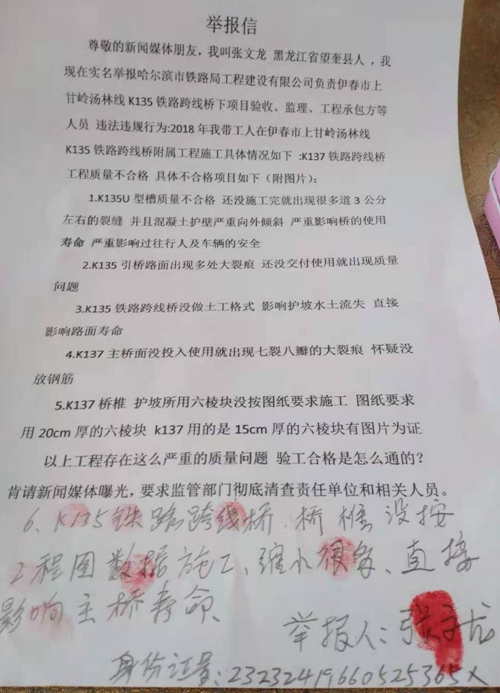 举报信
尊敬的新闻媒体朋友，我叫张文龙 黑龙江省望奎县人 ，我
现在实名举报哈尔滨市铁路局工程建设有限公司负责伊春市上
甘岭汤林线 K135 铁路跨线桥下项目验收、监理、工程承包方等
人员 违法违规行为:2018 年我带工人在伊春市上甘岭汤林线
K135 铁路跨线桥附属工程施工具体情况如下 :K137 铁路跨线桥
工程质量不合格 具体不合格项目如下（附图片）：
1.K135U 型槽质量不合格 还没施工完就出现很多道 3 公分
左右的裂缝 并且混凝土护壁严重向外倾斜 严重影响桥的使用
寿命 严重影响过往行人及车辆的安全
2.K135 引桥路面出现多处大裂痕 还没交付使用就出现质量
问题
3.K135 铁路跨线桥没做土工格式 影响护坡水土流失 直接
影响路面寿命
4.K137 主桥面没投入使用就出现七裂八瓣的大裂痕 怀疑没
放钢筋
5.K137 桥椎 护坡所用六棱块没按图纸要求施工 图纸要求
用 20cm 厚的六棱块 k137 用的是 15cm 厚的六棱块有图片为证
以上工程存在这么严重的质量问题 验工合格是怎么通的？
肯请新闻媒体曝光，要求监管部门彻底清查责任单位和相关人员。
6、K135铁路跨线桥、桥椎没按
工程图数据施工、缩小很多、直接
影响主桥寿命、
举报人：张文龙
身份证号：23232419660525365X